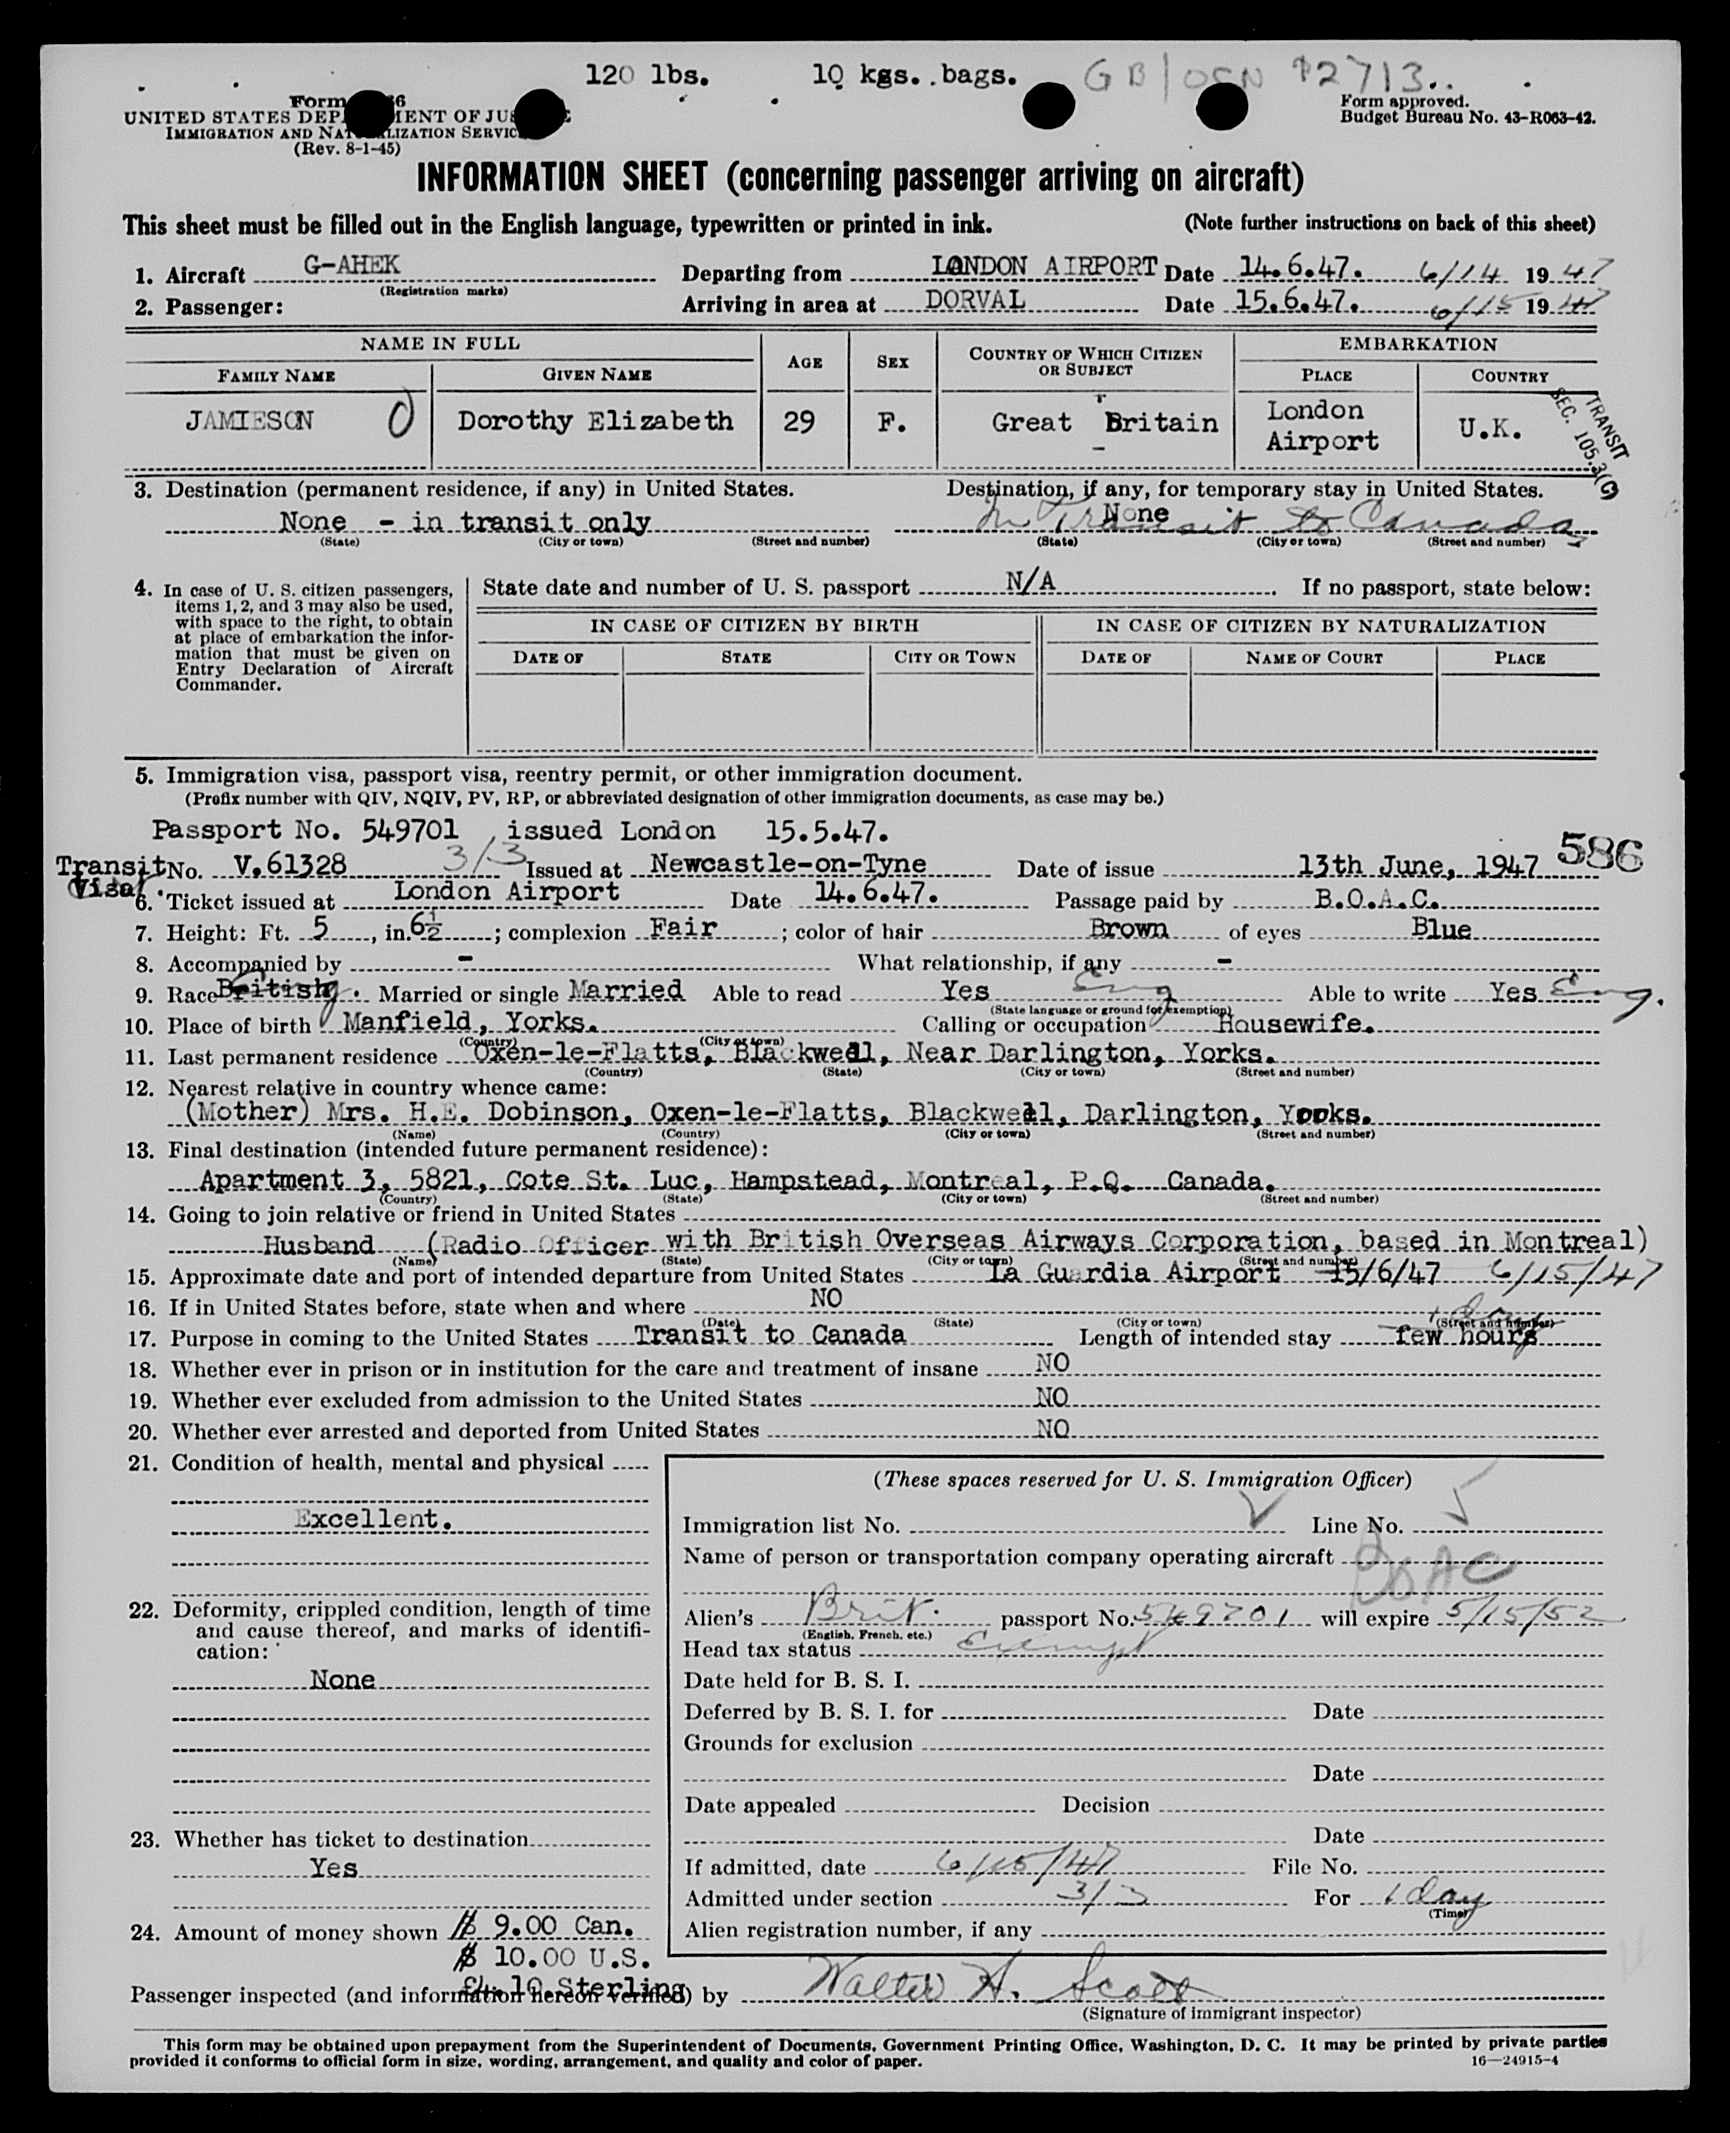 120 lbs. 10 kgs. bags. GB/OSN 92713
Form 6
UNITED STATES DEP MENT OF JUS E
IMMIGRATION AND NAT LIZATION SERVIC
(Rev. 8-1-45)
Form approved.
Budget Bureau No. 43-R063-42.
INFORMATION SHEET (concerning passenger arriving on aircraft)
This sheet must be filled out in the English language, typewritten or printed in ink. (Note further instructions on back of this sheet)
1. Aircraft G-AHEK Departing from LONDON AIRPORT Date 14.6.47. 6/14 1947
(Registration marks)
2. Passenger: Arriving in area at DORVAL Date 15.6.47. 6/15 1947
NAME IN FULL AGE SEX COUNTRY OF WHICH CITIZEN OR SUBJECT EMBARKATION
FAMILY NAME GIVEN NAME PLACE COUNTRY
JAMIESON Dorothy Elizabeth 29 F. Great Britain London Airport U.K.
TRANSIT
SEC. 105.3(C)
3. Destination (permanent residence, if any) in United States. Destination, if any, for temporary stay in United States.
None - in transit only None In Transit to Canada
(State) (City or town) (Street and number) (State) (City or town) (Street and number)
4. In case of U. S. citizen passengers, items 1, 2, and 3 may also be used, with space to the right, to obtain at place of embarkation the information that must be given on Entry Declaration of Aircraft Commander.
State date and number of U. S. passport N/A. If no passport, state below:
IN CASE OF CITIZEN BY BIRTH IN CASE OF CITIZEN BY NATURALIZATION
DATE OF STATE CITY OR TOWN DATE OF NAME OF COURT PLACE
5. Immigration visa, passport visa, reentry permit, or other immigration document.
(Prefix number with QIV, NQIV, PV, RP, or abbreviated designation of other immigration documents, as case may be.)
Passport No. 549701, issued London 15.5.47.
586
Transit Visa. No. V.61328 3/3 Issued at Newcastle-on-Tyne Date of issue 13th June, 1947
6. Ticket issued at London Airport Date 14.6.47. Passage paid by B.O.A.C.
7. Height: Ft. 5, in. 6½; complexion Fair; color of hair Brown of eyes Blue
8. Accompanied by - What relationship, if any -
9. Race British. Married or single Married Able to read Yes Eng Able to write Yes Eng.
(State language or ground for exemption)
10. Place of birth Manfield, Yorks. Calling or occupation Housewife.
(Country) (City or town)
11. Last permanent residence Oxen-le-Flatts, Blackwell, Near Darlington, Yorks.
(Country) (State) (City or town) (Street and number)
12. Nearest relative in country whence came:
(Mother) Mrs. H.E. Dobinson, Oxen-le-Flatts, Blackwell, Darlington, Yorks.
(Name) (Country) (City or town) (Street and number)
13. Final destination (intended future permanent residence):
Apartment 3, 5821, Cote St. Luc, Hampstead, Montreal, P.Q. Canada.
(Country) (State) (City or town) (Street and number)
14. Going to join relative or friend in United States
Husband (Radio Officer with British Overseas Airways Corporation, based in Montreal)
(Name) (State) (City or town) (Street and number)
15. Approximate date and port of intended departure from United States La Guardia Airport 15/6/47 6/15/47
16. If in United States before, state when and where NO
(Date) (State) (City or town) (Street and number)
17. Purpose in coming to the United States Transit to Canada Length of intended stay few hours 1 day
18. Whether ever in prison or in institution for the care and treatment of insane NO
19. Whether ever excluded from admission to the United States NO
20. Whether ever arrested and deported from United States NO
21. Condition of health, mental and physical
Excellent.
22. Deformity, crippled condition, length of time and cause thereof, and marks of identification:
None
23. Whether has ticket to destination
Yes
24. Amount of money shown $ 9.00 Can.
$ 10.00 U.S.
£4. 10. Sterling
(These spaces reserved for U. S. Immigration Officer)
Immigration list No. Line No. 5
Name of person or transportation company operating aircraft BOAC
Alien's Brit. passport No. 549701 will expire 5/15/52
(English, French, etc.)
Head tax status Exempt
Date held for B. S. I.
Deferred by B. S. I. for Date
Grounds for exclusion
Date
Date appealed Decision
Date
If admitted, date 6/15/47 File No.
Admitted under section 3/3 For 1 day
(Time)
Alien registration number, if any
Passenger inspected (and information hereon verified) by Walter A. Scott
(Signature of immigrant inspector)
This form may be obtained upon prepayment from the Superintendent of Documents, Government Printing Office, Washington, D. C. It may be printed by private parties
provided it conforms to official form in size, wording, arrangement, and quality and color of paper. 16—24915-4